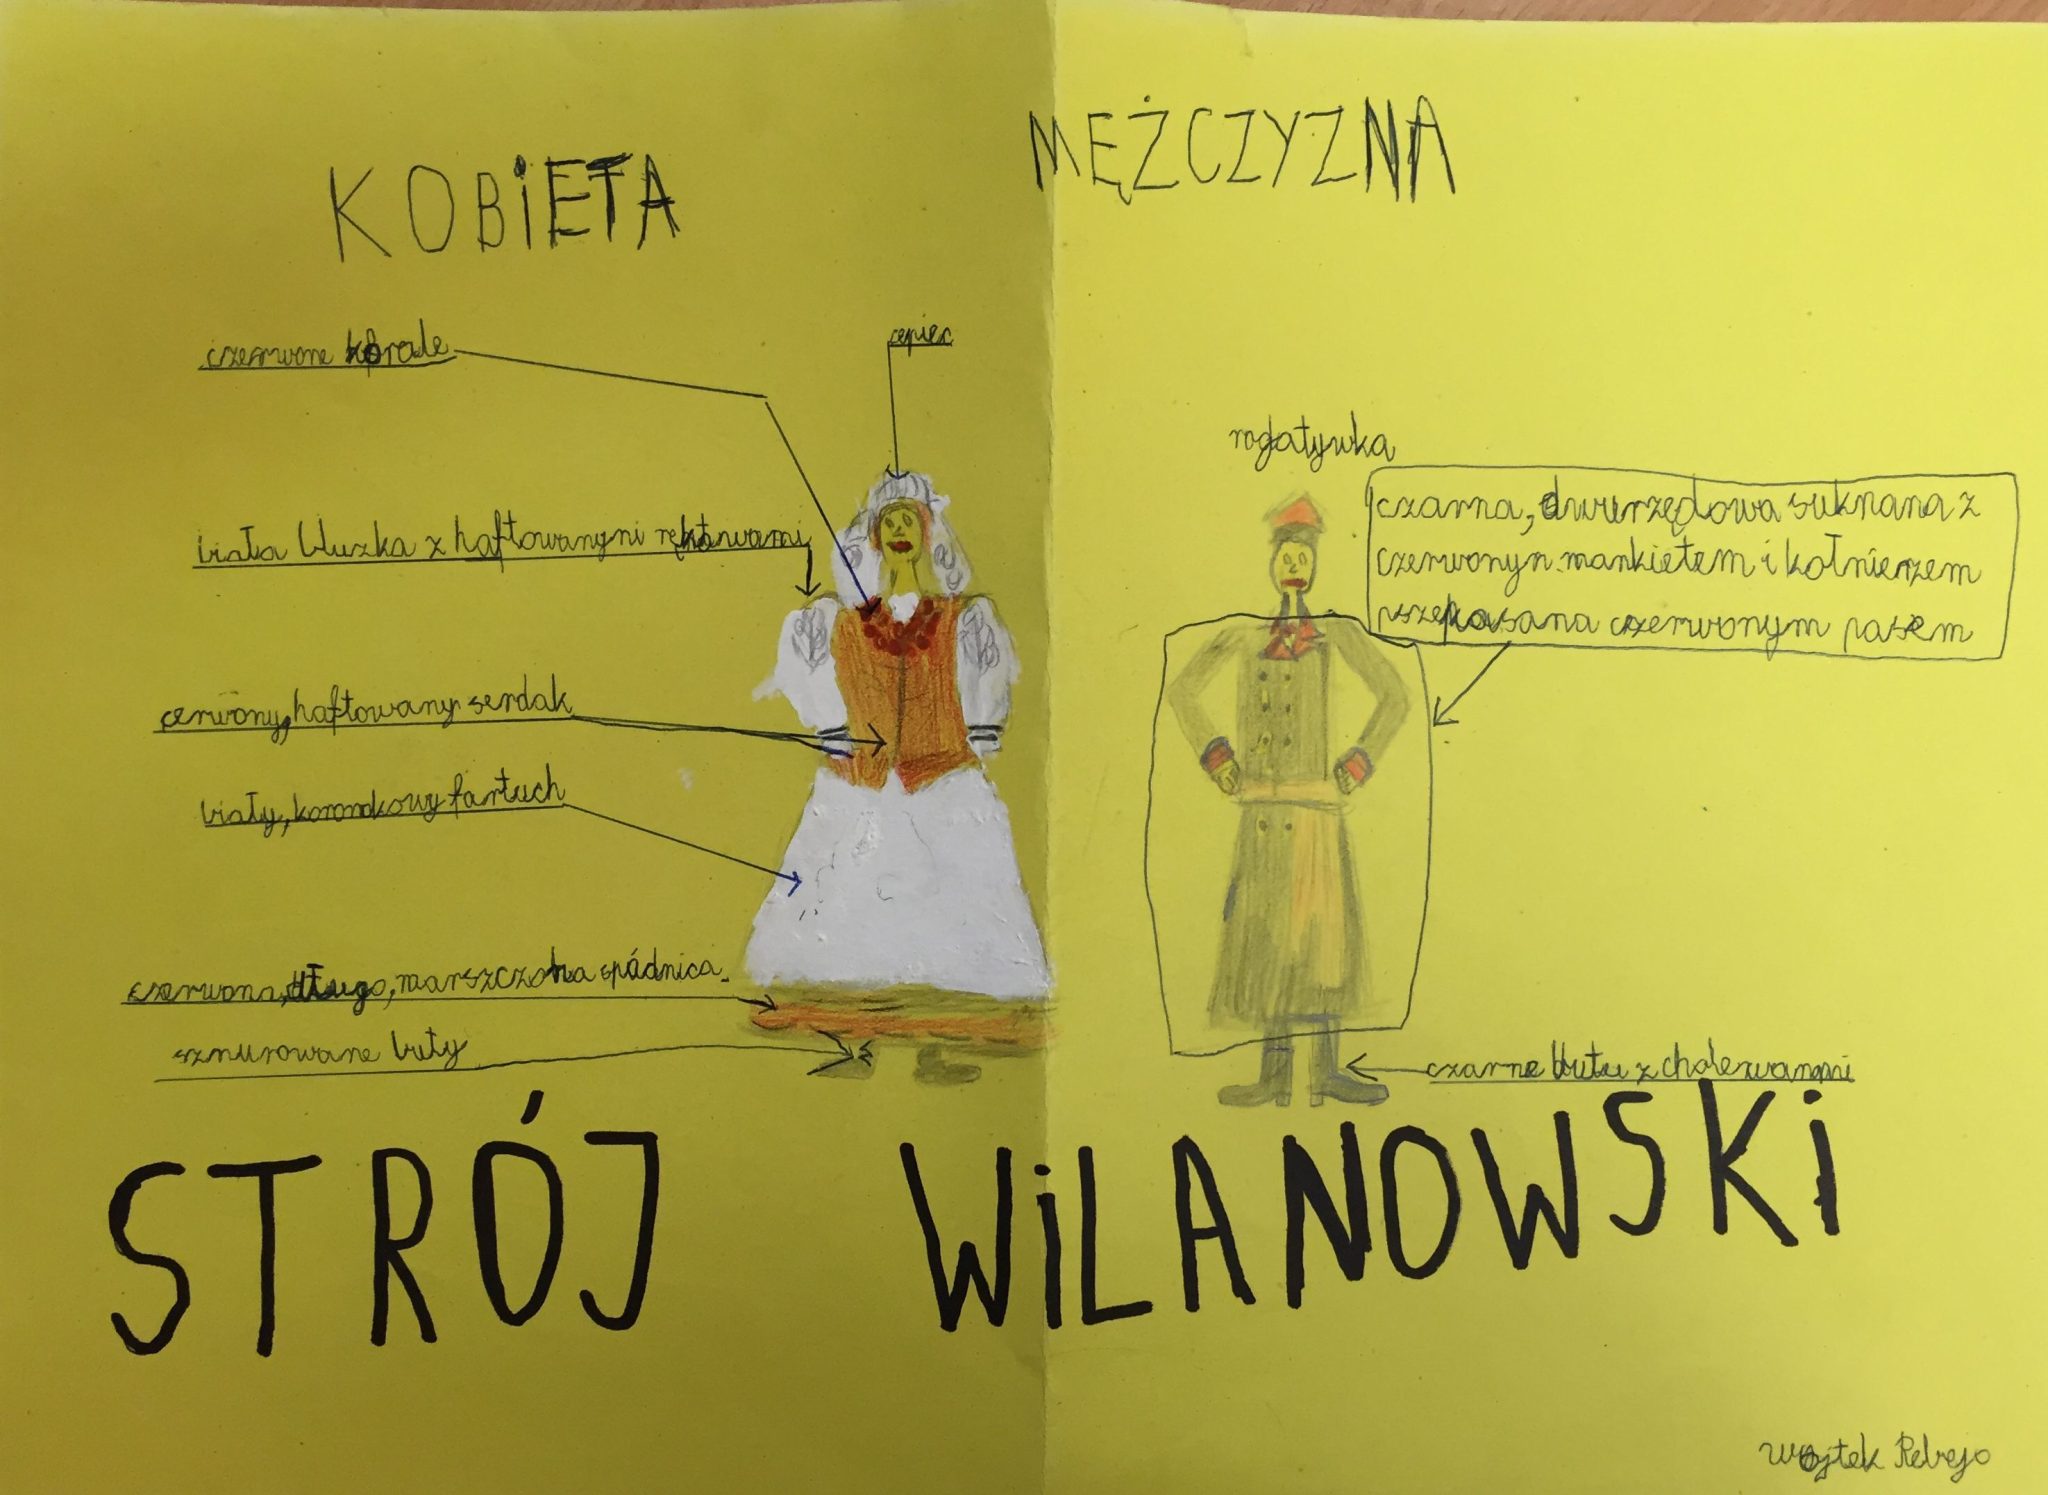 KOBiETA
MĘŻCZYZNA
czerwone korale
czepiec
biała bluzka z haftowanymi rękawami
rogatywka
czarna, dwurzędowa suknana z
czerwonym mankietem i kołnierzem
przepasana czerwonym pasem
czerwony, haftowany serdak
biały, koronkowy fartuch
czerwona, długa, marszczona spódnica
sznurowane buty
czarne buty z cholewami
STRÓJ WiLANOWSKi
Wojtek